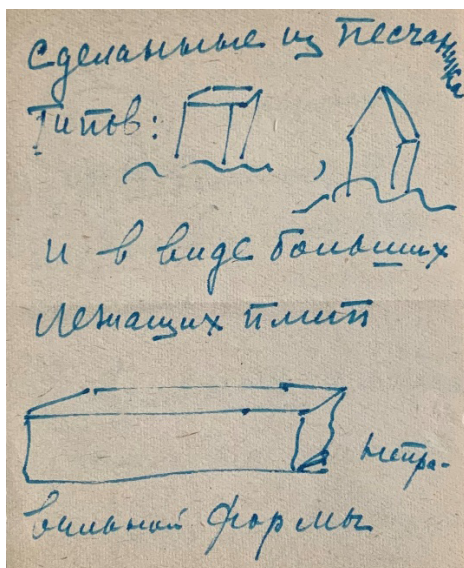 сделанные из песчаника
типов: ,
и в виде больших
лежащих плит
непра-
вильной формы